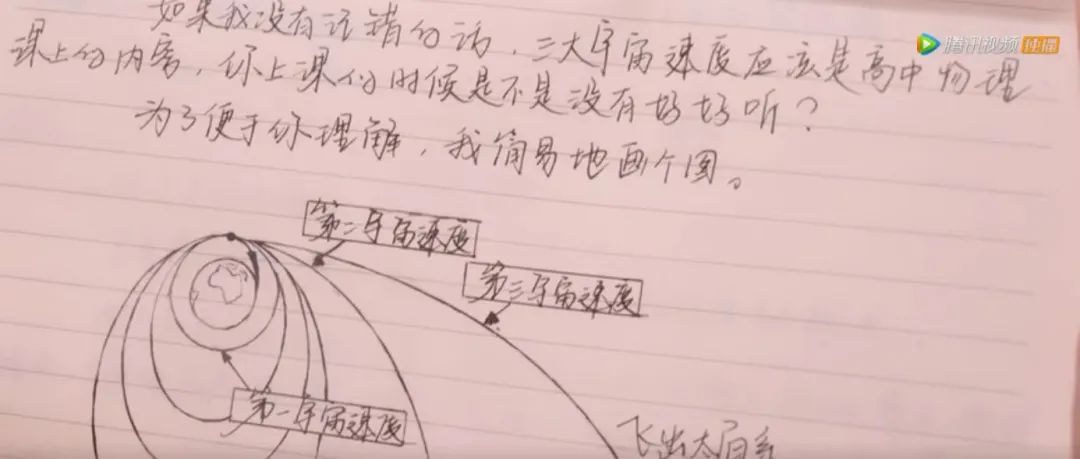 如果我没有记错的话，三大宇宙速度应该是高中物理
课上的内容，你上课的时候是不是没有好好听？
为了便于你理解，我简易地画个图。
腾讯视频 独播
第二宇宙速度
第三宇宙速度
第一宇宙速度
飞出太阳系